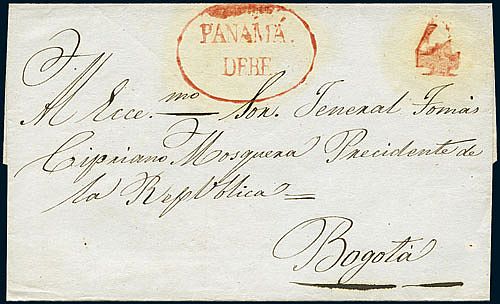 PANAMÁ.
DEBE
4
Al Ecce.mo Sor. Jeneral Tomás
Cipriano Mosquera Precidente de
la República
Bogotá